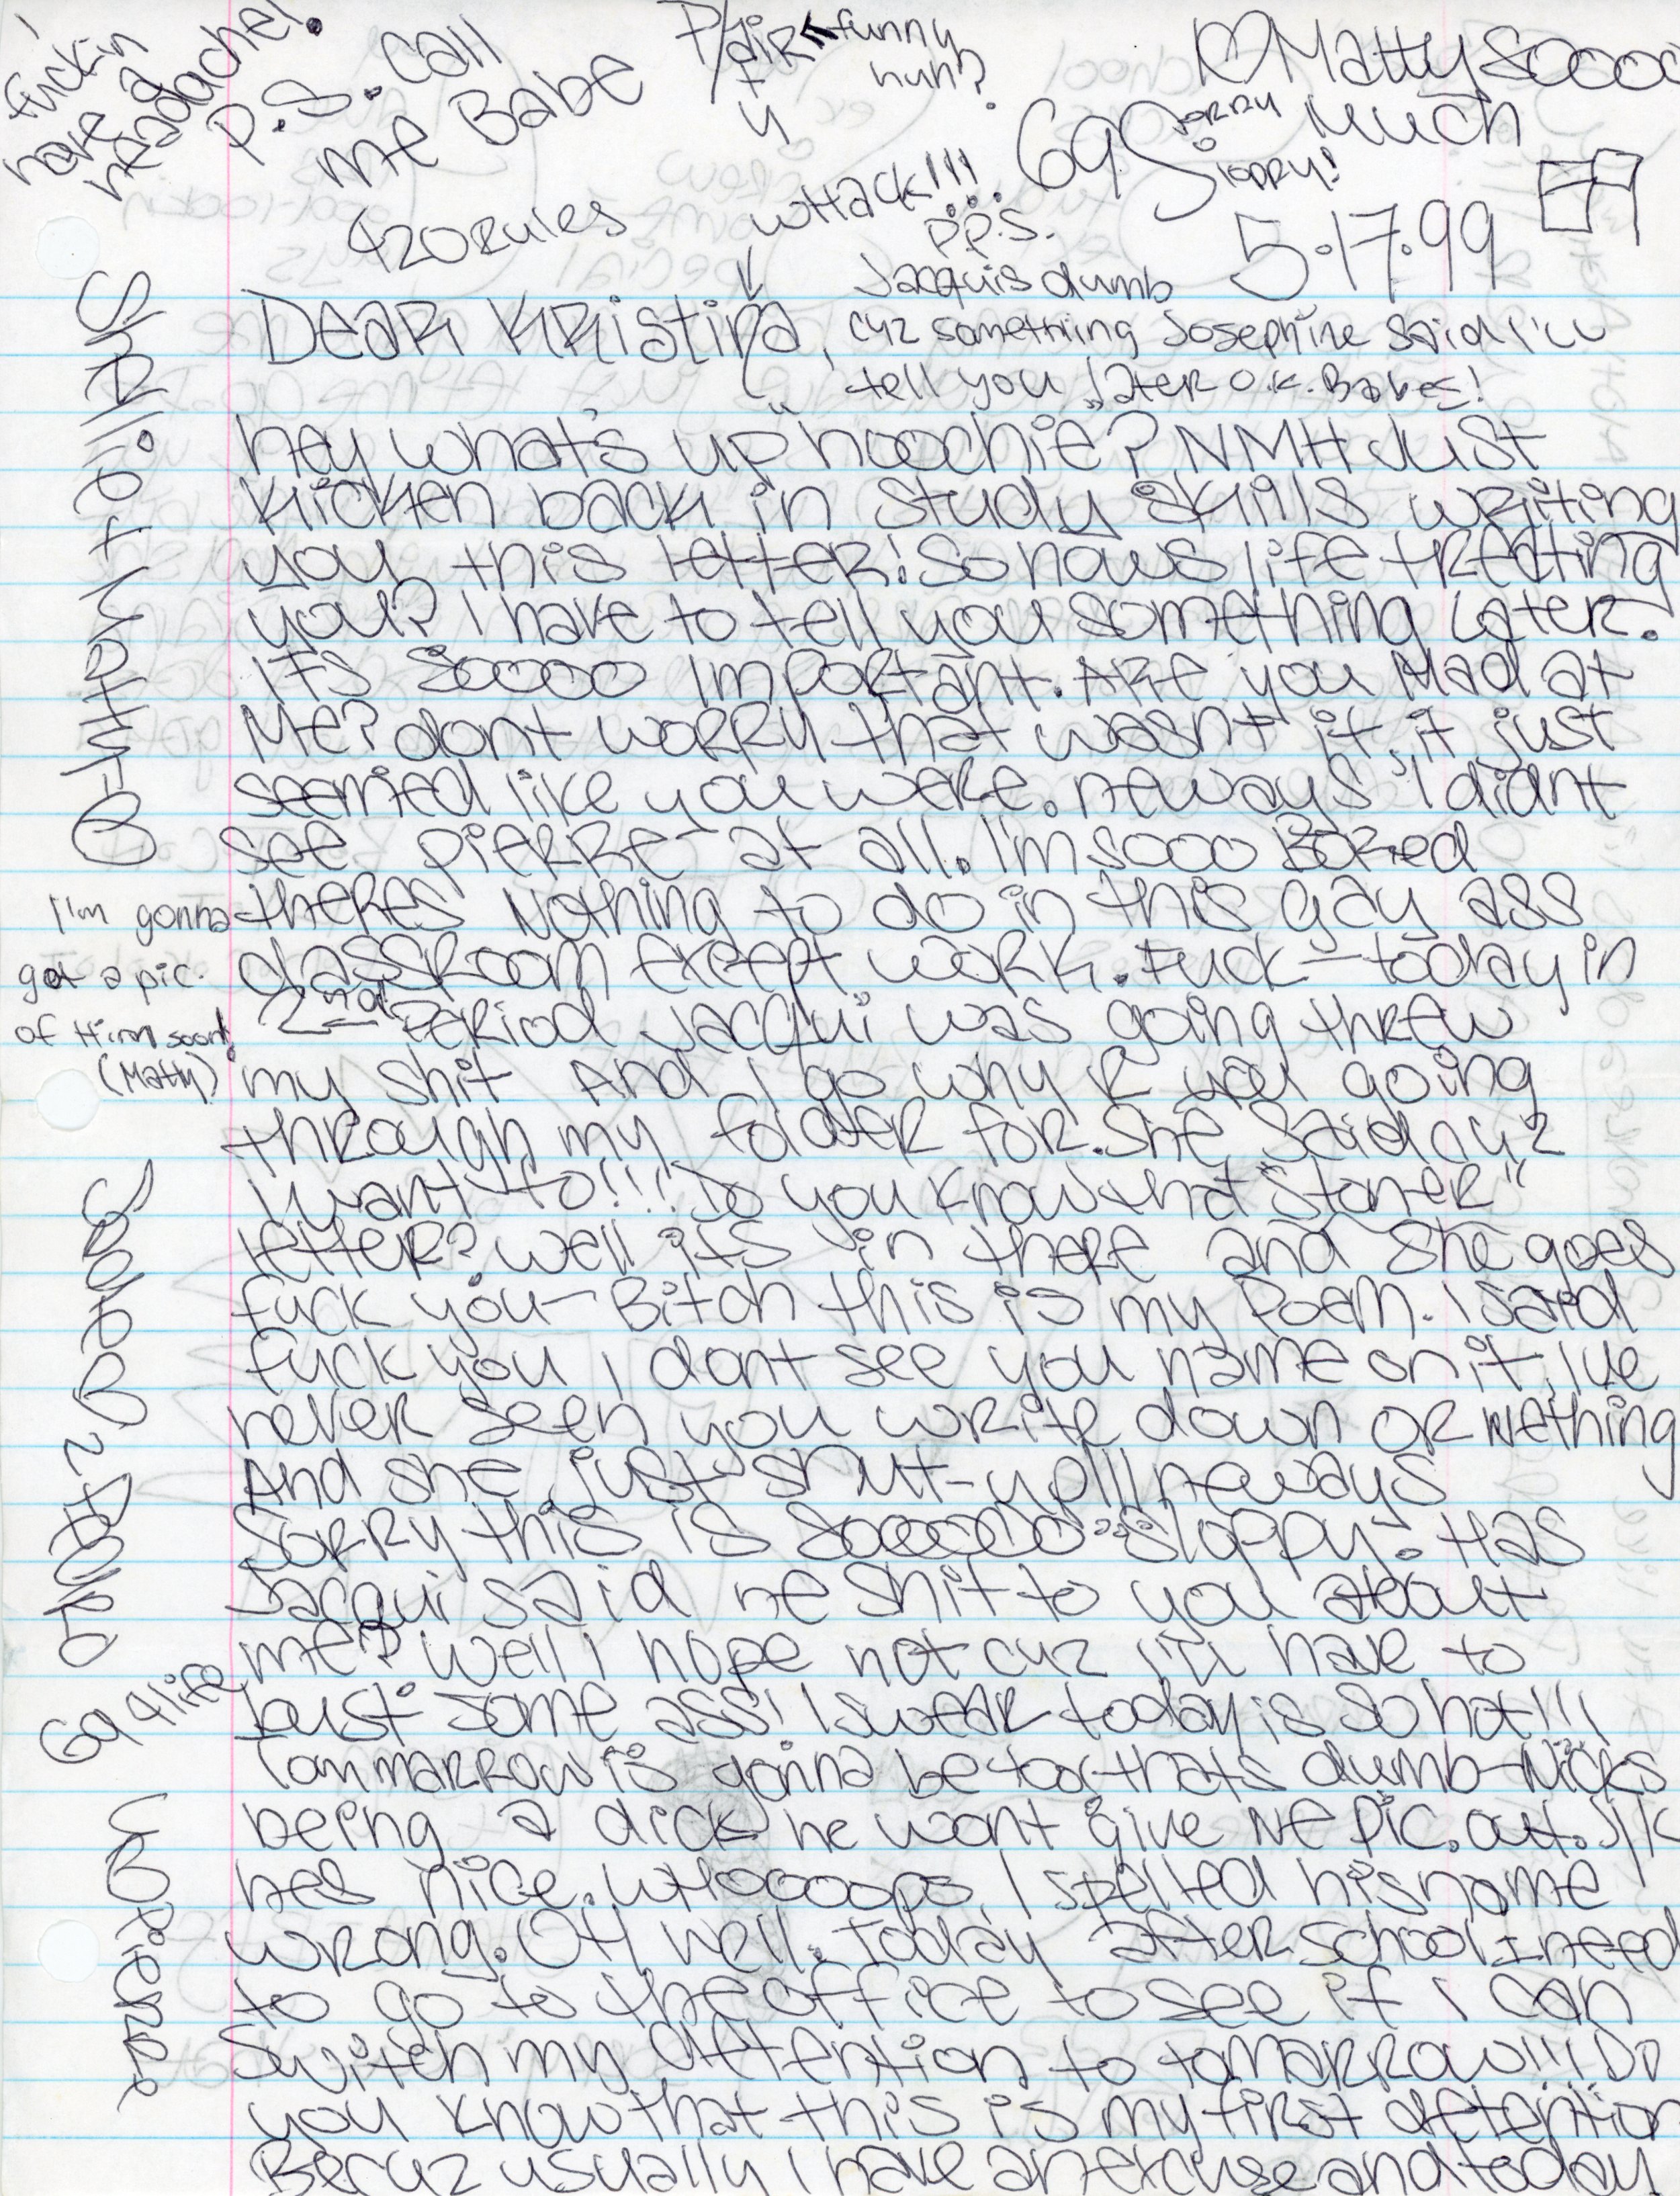 I
fuckin
have a
headache!.
P.S. Call
me Babe
420 Rules
P/air ← funny
t huh?
y
I ♡ Matty soooo
much
69 Sorry
Siorry!
WHack!!!
5.17.99
P.P.S.
Jacqui's dumb
Dear Kristina,
cuz something Josephine said I'll
tell you later O.K. Babes!
hey what's up "hoochie"? NMH Just
Kicken back in study skills writing
you this letter! So hows life treating
you? I have to tell you something Later.
It's soooo important. Are you Mad at
Me? dont worry that wasnt it, it just
seemed like you were. neways I didnt
see pierre at all. I'm sooo Bored
theres Nothing to do in this gay ass
classroom except work. Fuck - today in
2nd Period Jacqui was going threw
my shit And I go why R you going
through my folder for. She said cuz
I want to!!! Do you know that "Stoner"
letter? well its in there and she goes
fuck you - Bitch this is my Poem. I said
fuck you I dont see you name on it, Ive
never seen you write down or nething
And she just shut-up!!! neways
Sorry this is soooooo sloppy. Has
Jacqui said ne shit to you about
me? Well I hope not cuz I'll have to
bust some ass! I swear today is so hot!!!
Tommarrow is gonna be too thats dumb - Nicks
being a dick he wont give ne pic. out. J/K
hes nice. WHooooops I spelled his name
wrong. OH well. Today after school I need
to go to the office to see if I can
Switch my detention to tomarrow!!! Do
you know that this is my first detention
Becuz usually I have an excuse and today
I'm gonna
get a pic.
of Him soon!
(Matty)
69 4 life